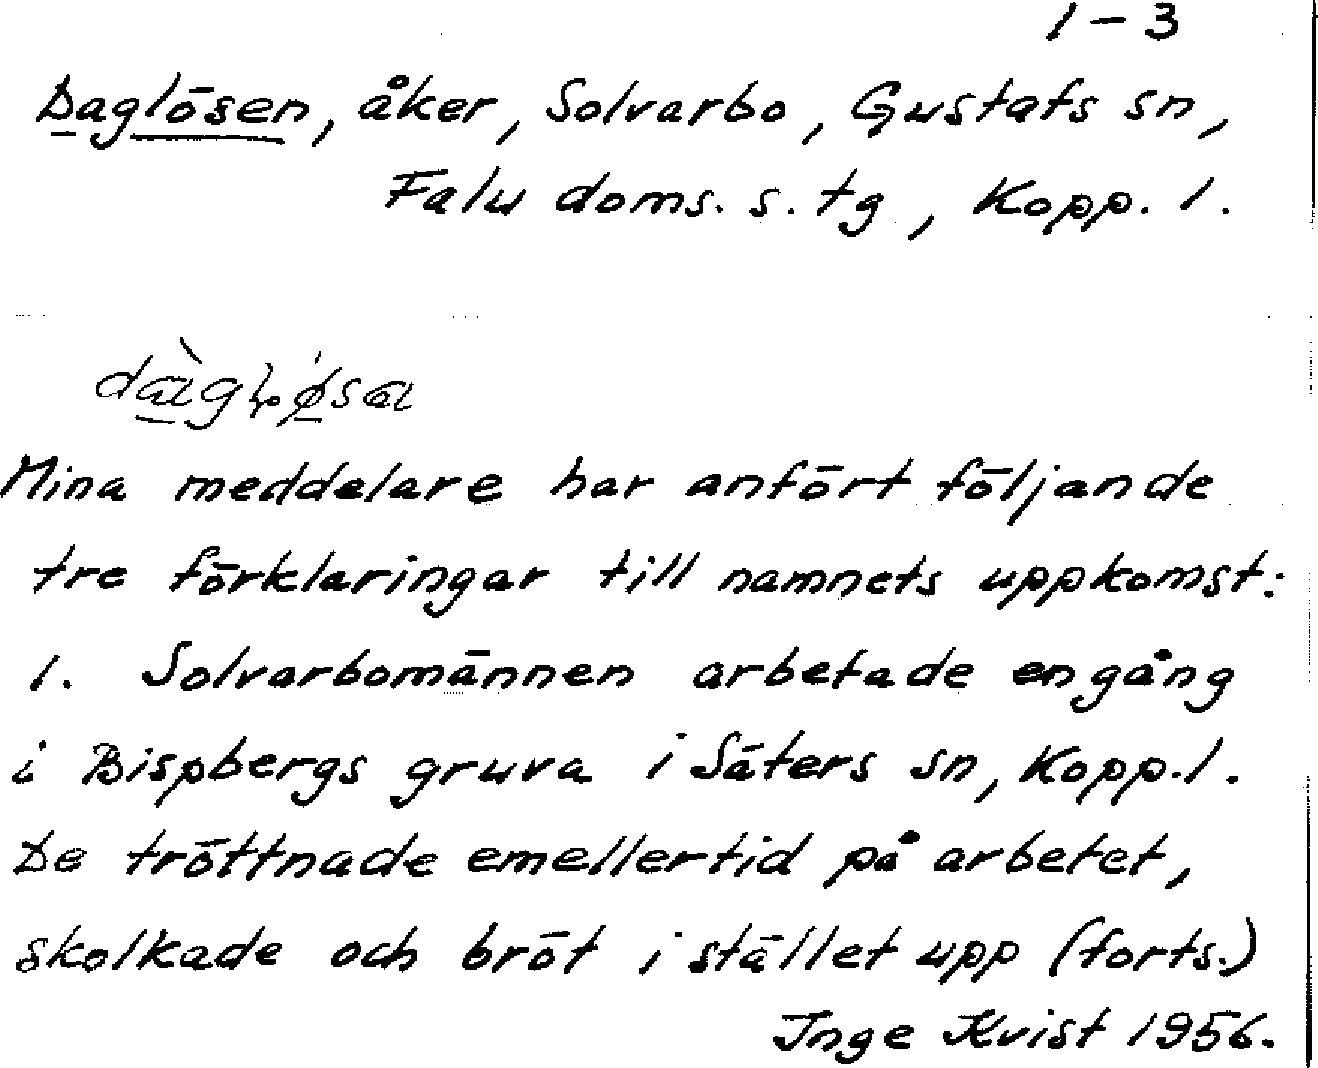 1-3
Daglösen, åker, Solvarbo, Gustafs sn,
Falu doms. s. tg, Kopp. l.
Mina meddelare har anfört följande
tre förklaringar till namnets uppkomst:
1. Solvarbomännen arbetade engång
i Bispbergs gruva i Säters sn, Kopp. l.
De tröttnade emellertid på arbetet,
skolkade och bröt i stället upp (forts.)
Inge Kvist 1956.